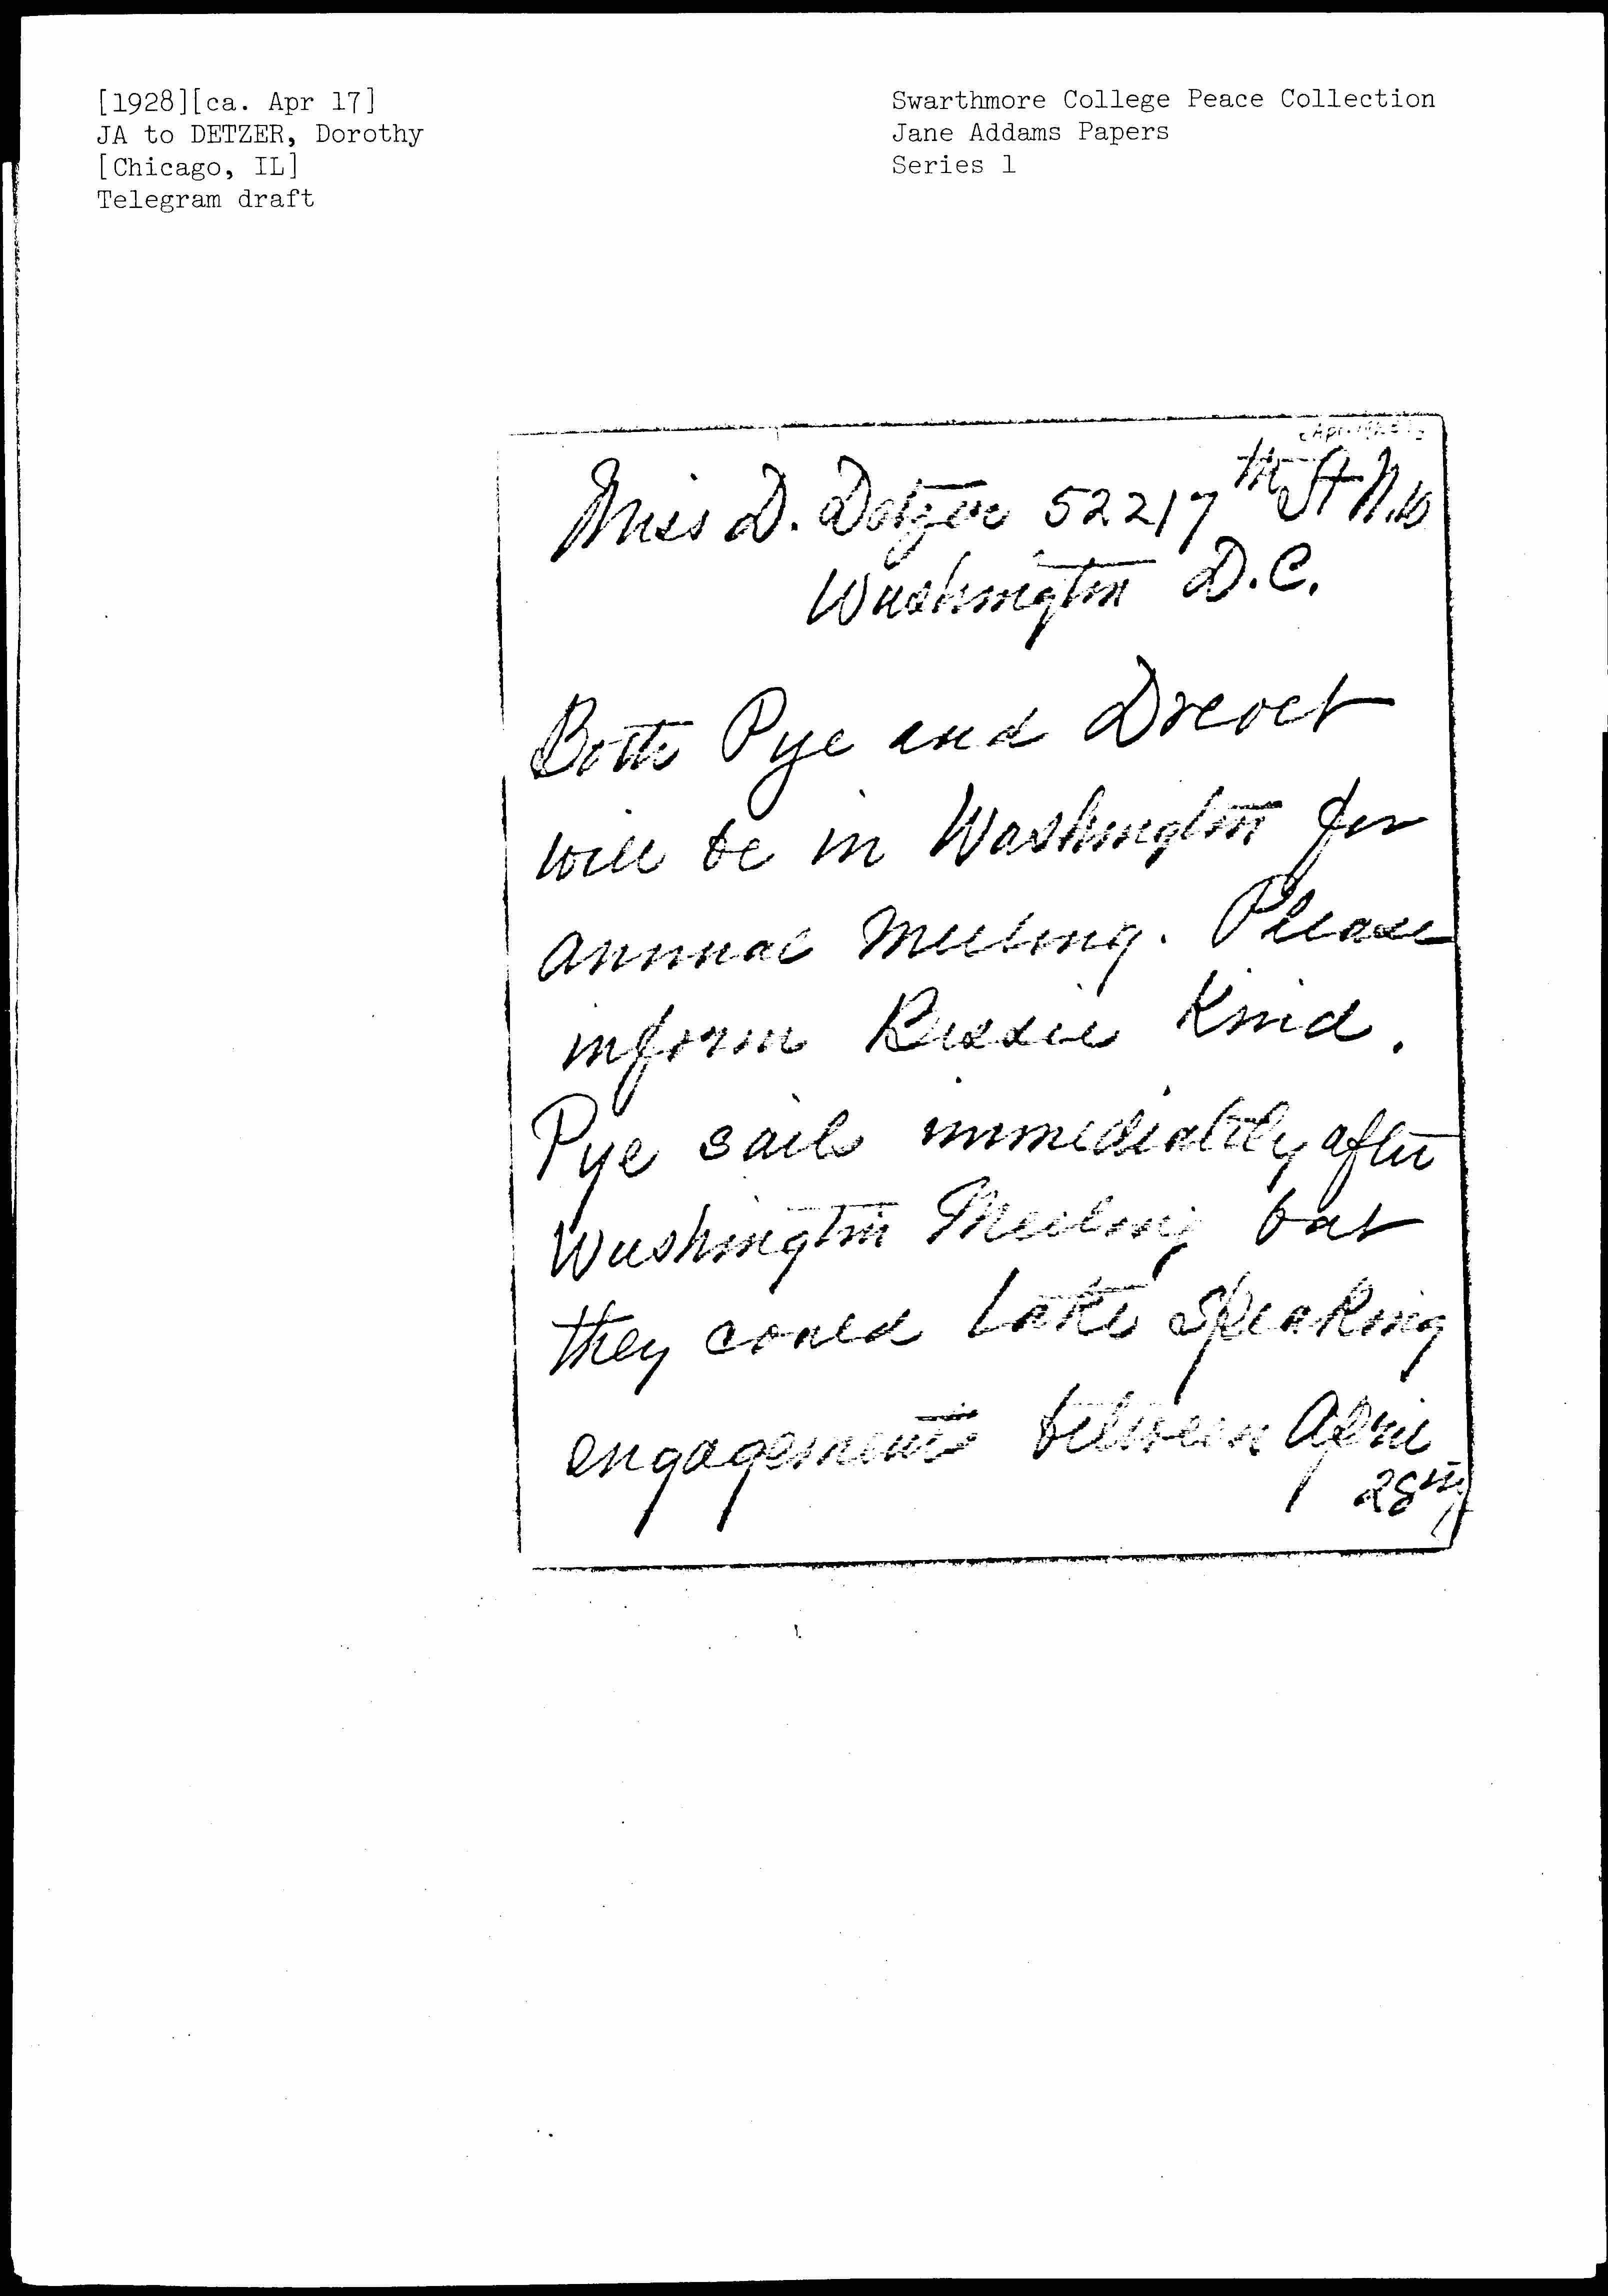 [1928][ca. Apr 17]
JA to DETZER, Dorothy
[Chicago, IL]
Telegram draft
Swarthmore College Peace Collection
Jane Addams Papers
Series 1
Miss D. Detzer 522 17th St N.W
Washington D.C.
Both Pye and Drevet
will be in Washington for
annual meeting. Please
inform Bessie Kind.
Pye sails immediately after
Washington Meeting but
they could take speaking
engagements between April
28th